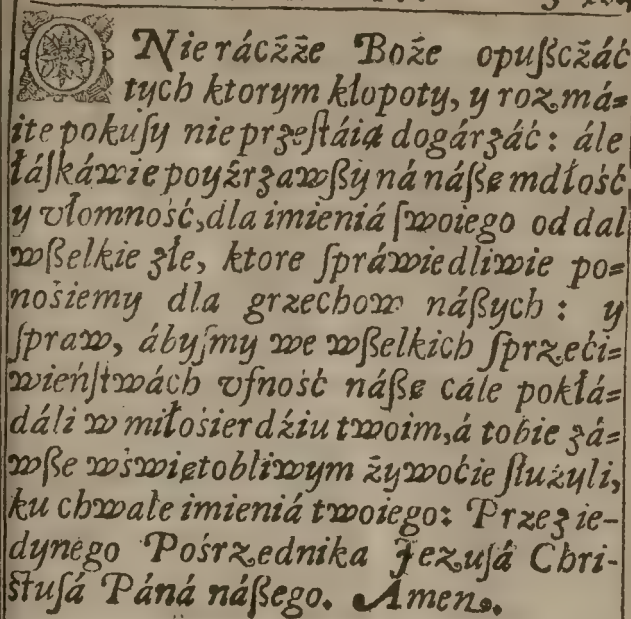 O Nie ráczże Boże opuſśczáć
tych ktorym kłopoty, y rozmá=
ite pokuſy nie przeſtáią dogárzáć: ále
łáſkáwie poyźrzawſzy ná náſzę mdłość
y vłomność, dla imieniá ſwoiego oddal
wſzelkie złe, ktore ſpráwiedliwie po=
nośiemy dla grzechow náſzych: y
ſpraw, ábyſmy we wſzelkich ſprzeći=
wieńſtwách vfność náſzę cále pokłá=
dáli w miłośierdźiu twoim, á tobie zá=
wſze wświętobliwym żywoćie ſłużyli,
ku chwale imieniá twoiego: Przez ie-
dynego Pośrzednika Jezuſá Chri-
ſtuſá Páná náſzego. Amen.